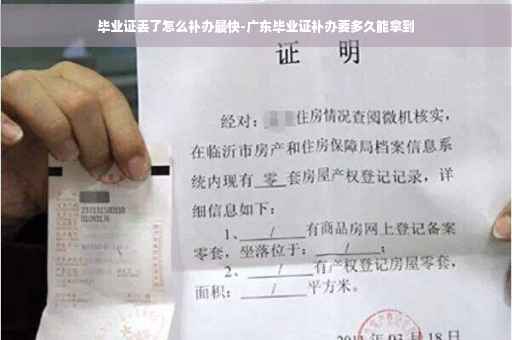 毕业证丢了怎么补办最快-广东毕业证补办要多久能拿到
证 明
经对:住房情况查阅微机核实,
在临沂市房产和住房保障局档案信息系
统内现有 零 套房屋产权登记记录,详
细信息如下:
1、 / 有商品房网上登记备案
零套,坐落位于: / ;
2、 / 有产权登记房屋零套,
面积: / 平方米。
03 月 18 日